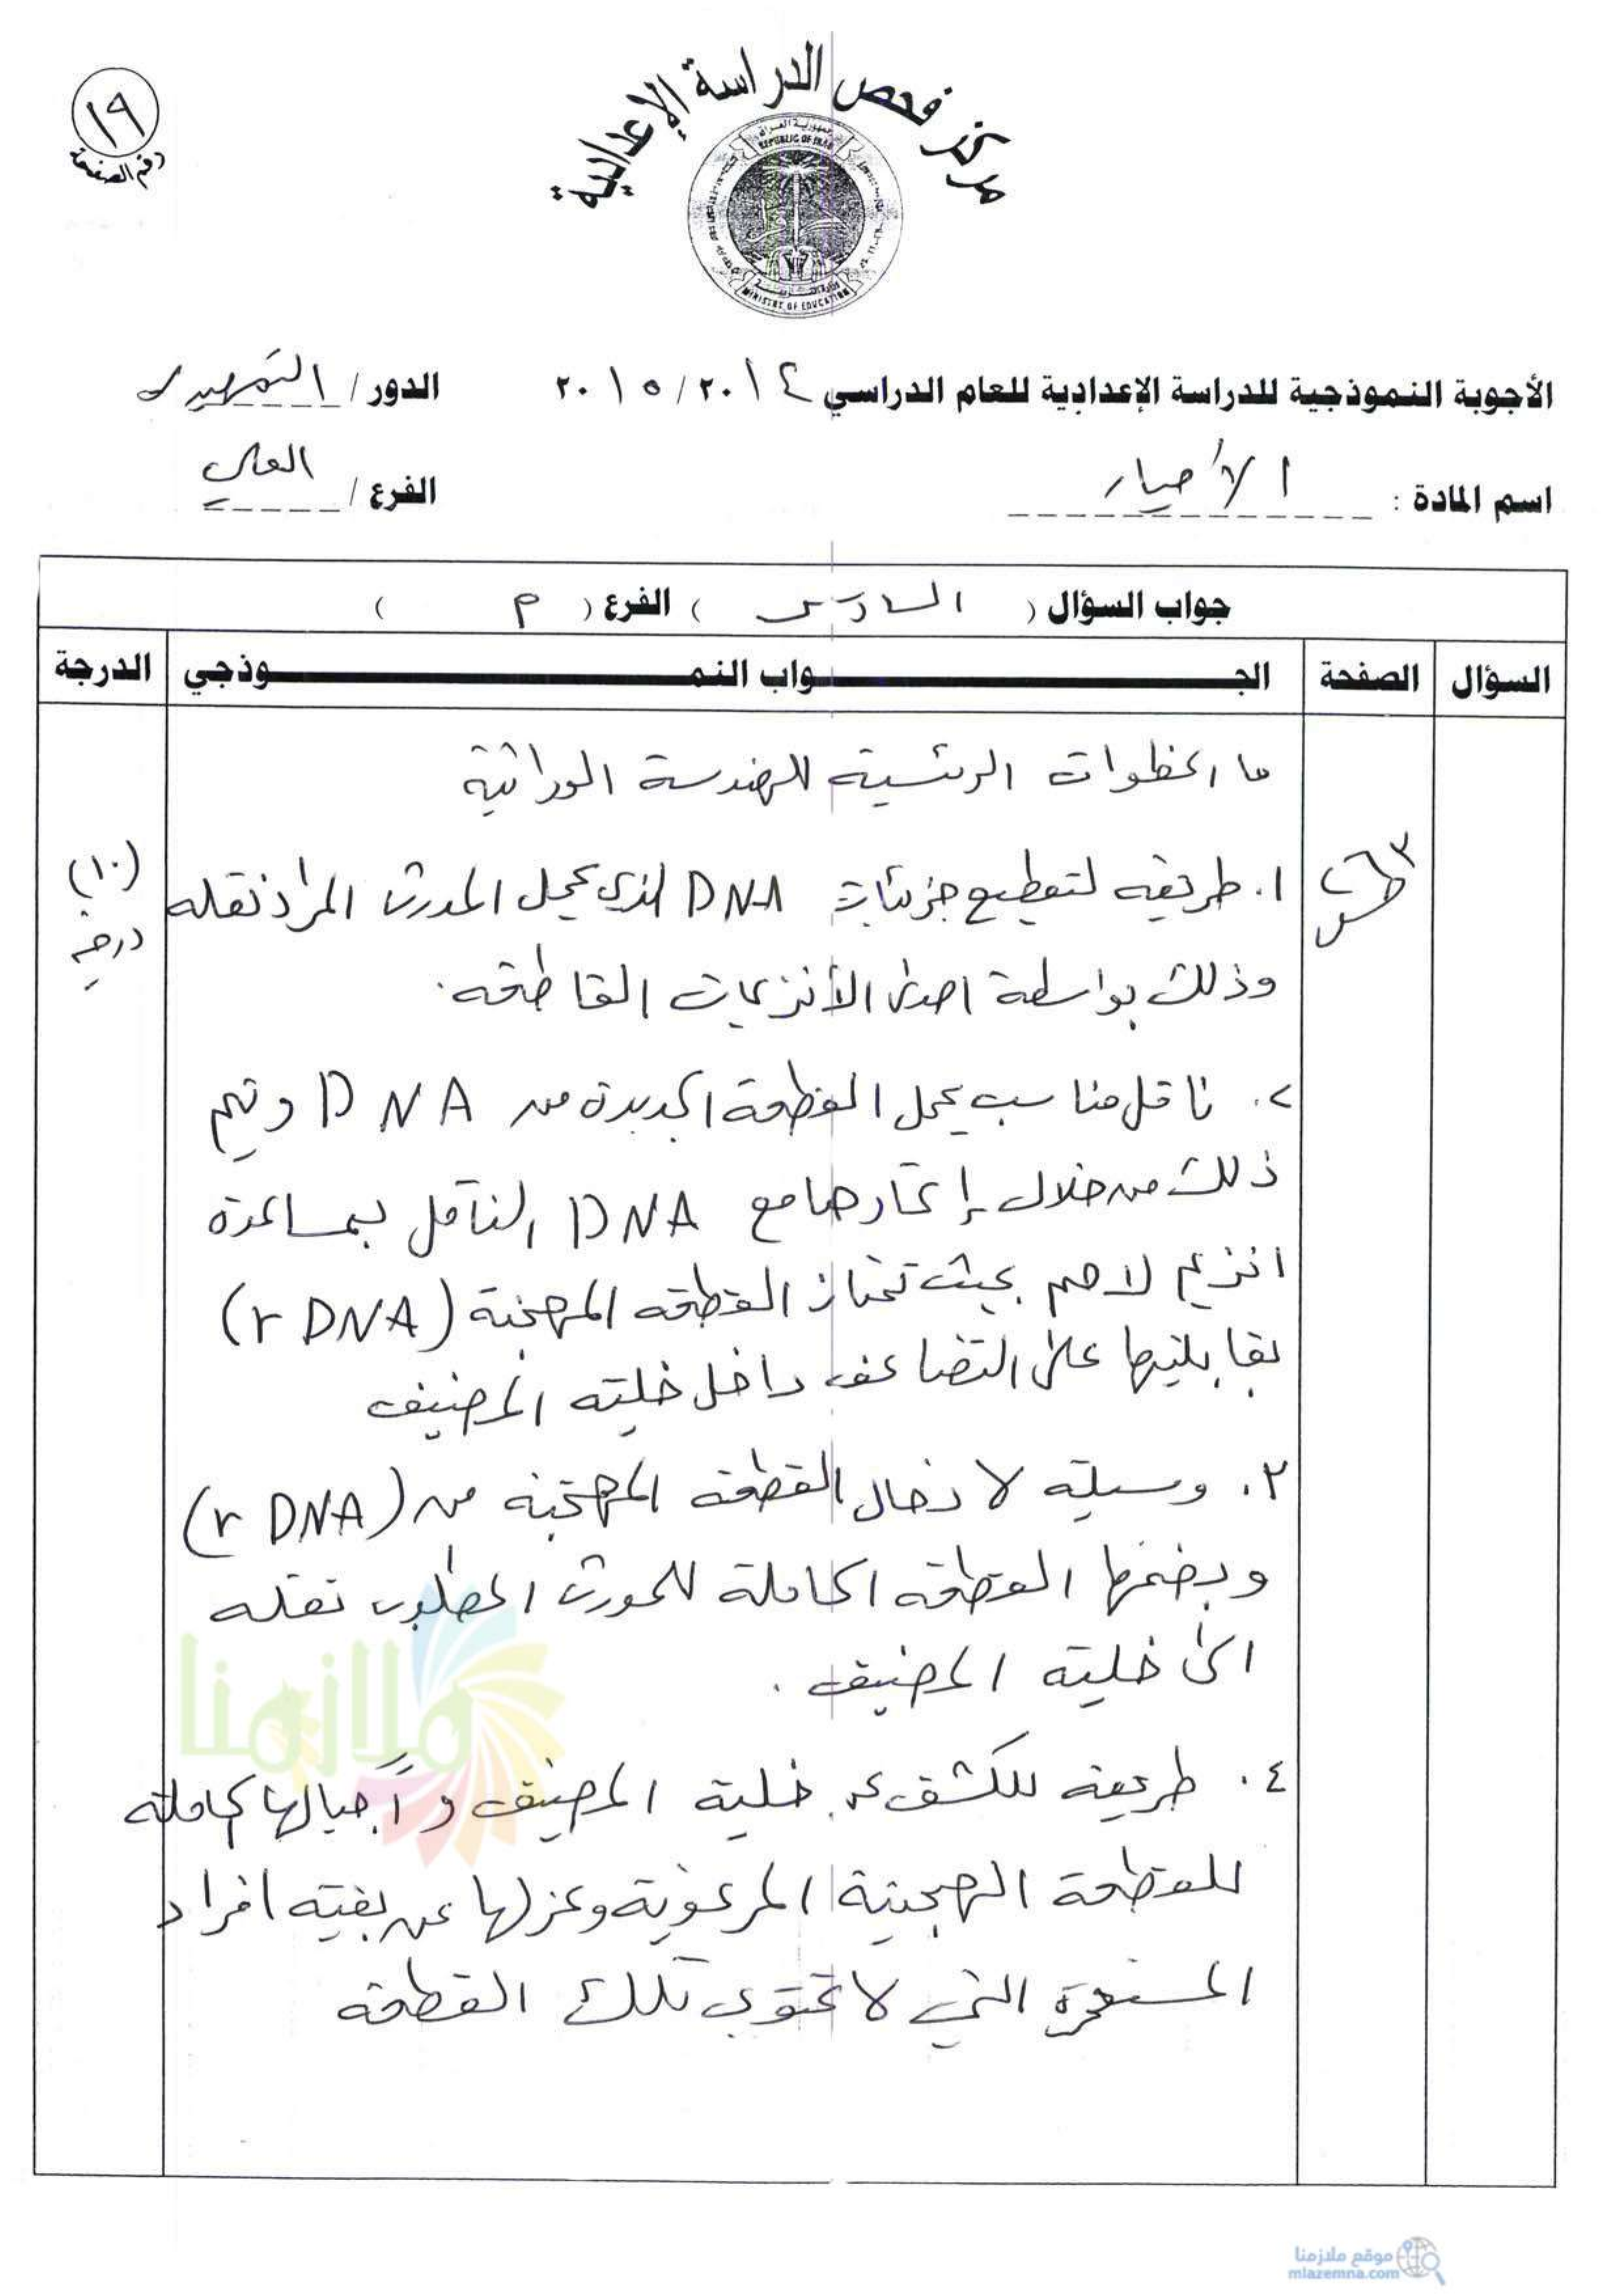 ١٩
رقم الصفحة
مركز فحص الدراسة الإعدادية
جمهورية العراق
REPUBLIC OF IRAQ
MINISTRY OF EDUCATION
الأجوبة النموذجية للدراسة الإعدادية للعام الدراسي ٢٠١٤/ ٢٠١٥ الدور / التمهيدي
اسم المادة : الأحياء الفرع / العلمي
جواب السؤال ( السادس ) الفرع ( م )
السؤال الصفحة الجـواب النمـوذجي الدرجة
ما الخطوات الرئسية للهندسة الوراثية
١. طريقه لتقطيع جزيئات DNA الذي يحمل المورث المراد نقله
(١٠)
درجة
وذلك بواسطة احدى الأنزيمات القاطعه.
٢. ناقل مناسب يحمل القطعة الجديدة من DNA ويتم
ذلك من خلال إتحادها مع DNA الناقل بمساعدة
انزيم لاحم بحيث تمتاز القطعه المهجنة (r DNA)
بقابليتها على التضاعف داخل خلية المضيف
٣. وسيلة لادخال القطعه المهجنه من (r DNA)
وبضمنها القطعه الحاملة للمورث المطلوب نقله
الى خلية المضيف .
٤. طريقه للكشف عن خلية المضيف وأجيالها الحاملة
للقطعة الهجينة المرغوبة وعزلها عن بقية افراد
المستعمرة التي لا تحتوي تلك القطعه
ملازمنا
موقع ملازمنا
mlazemna.com